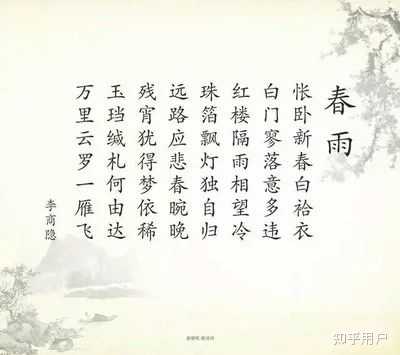 春雨
怅卧新春白袷衣
白门寥落意多违
红楼隔雨相望冷
珠箔飘灯独自归
远路应悲春晼晚
残宵犹得梦依稀
玉珰缄札何由达
万里云罗一雁飞
李商隐
知乎用户